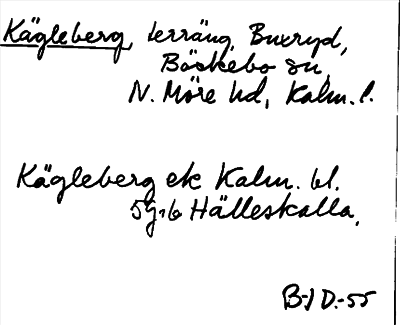 Kägleberg, terräng, Buxryd,
Böskebo sn,
N. Möre hd, Kalm. l.
Kägleberg ek Kalm. bl.
5g, 6 Hälleskalla,
B-J D.-55